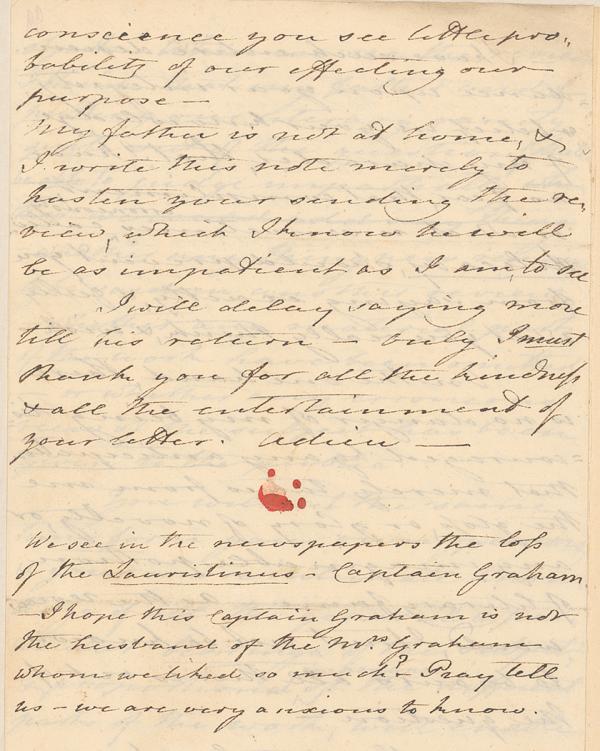 conscience you see little pro-
bability of our effecting our
purpose —
My father is not at home, &
I write this note merely to
hasten your sending the re-
view, which I know he will
be as impatient as I am, to see
I will delay saying more
till his return — only I must
thank you for all the kindness
& all the entertainment of
your letter. Adieu —
We see in the newspapers the loss
of the Lauristinus — Captain Graham
— I hope this Captain Graham is not
the husband of the Mrs Graham
whom we liked so much? Pray tell
us — we are very anxious to know.